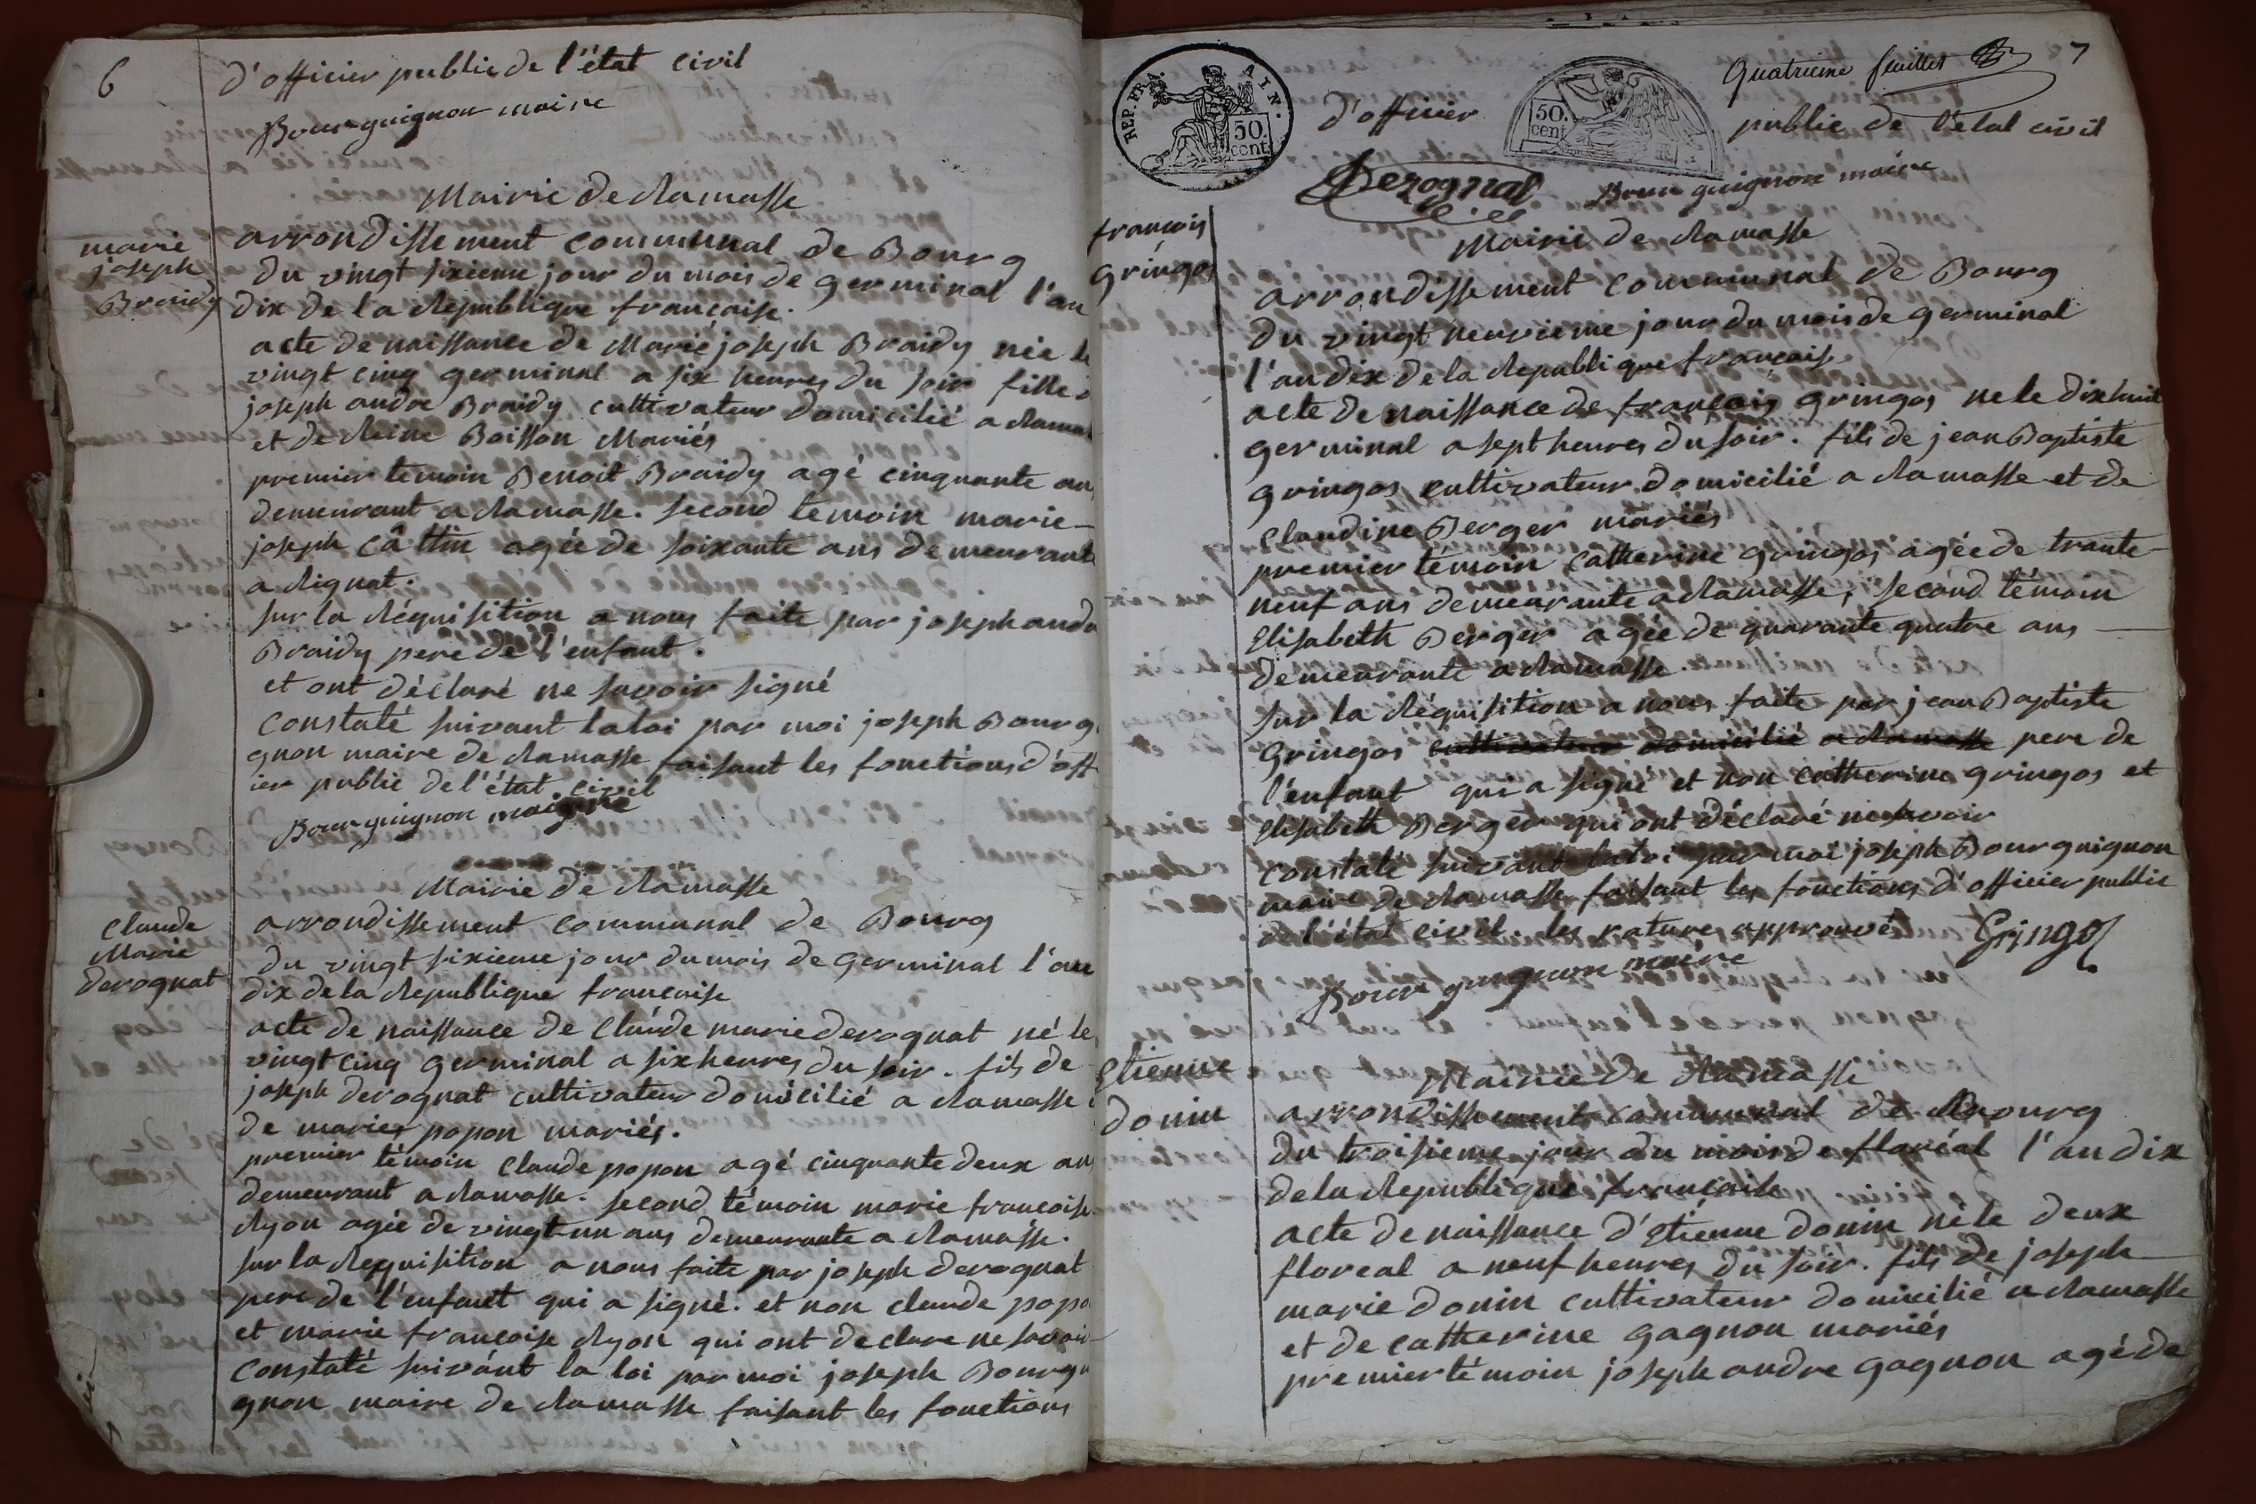 6
d'officier public de l'état civil
Bourguignon maire
Mairie de Ramasse
marie
joseph
Braidy
arrondissement communal de Bourg
du vingt sixieme jour du mois de germinal l'an
dix de la Republique française.
acte de naissance de Marie joseph Braidy née le
vingt cinq germinal a six heures du soir fille
joseph andre Braidy cultivateur domicilié a Ramas
et de Reine Boisson Mariés
premier temoin Benoit Braidy agé cinquante ans
demeurant a Ramasse. second temoin marie
joseph câttin agée de soixante ans demeurant
a Rignat.
sur la Réquisition a nous faite par joseph andr
Braidy pere de l'énfant.
et ont déclaré ne savoir signé
Constaté suivant la loi par moi joseph Bourg
gnon maire de Ramasse faisant les fonctions d'off
ier public de l'état civil
Bourguignon maire
Mairie de Ramasse
Claude
Marie
derognat
arrondissement communal de Bourg
du vingt sixieme jour du mois de Germinal l'an
dix de la Republique francaise
acte de naissance de Claude marie derognat né le
vingt cinq germinal a six heures du soir. fils de
joseph derognat cultivateur domicilié a Ramasse
de marie popon mariés.
premier témoin Claude popon agé cinquante deux ans
demeurant a Ramasse. second témoin marie francoise
Ryon agée de vingt un ans demeurante a Ramasse.
sur la Requisition a nous faite par joseph derognat
pere de l'enfant qui a signé. et non claude popo
et marie francoise Ryon qui ont declare ne savoir
Constaté suivant la loi par moi joseph Bourgu
gnon maire de Ramasse faisant les fonctions
7
quatrieme feuillet
REP. FRA.
AIN.
50.
cent.
50.
cent
d'officier public de l'état civil
Derognat Bourguignon maire
Mairie de Ramasse
francois
Gringos
arrondissement communal de Bourg
du vingt neuvieme jour du mois de germinal
l'an dix de la Republique française
acte de naissance de francois gringos ne le dix huit
germinal a sept heures du soir. fils de jean Baptiste
gringos cultivateur domicilié a Ramasse et de
Claudine Berger mariés
premier témoin Catherine gringos agée de trante
neuf ans demeurante a Ramasse, second témoin
Elisabeth Berger agée de quarante quatre ans
demeurante a Ramasse
sur la Réquisition a nous faite par jean Baptiste
Gringos cultivateur domicilié a Ramasse pere de
l'enfant qui a signé et non catherine gringos et
Elisabeth Berger qui ont déclaré ne savoir
Constaté suivant la loi par moi joseph Bourguignon
maire de Ramasse faisant les fonctions d'officier public
de l'état civil. les rature approuvé
Gringos
Bourguignon maire
Mairie de Ramasse
Etienne
donin
arrondissement communal de Bourg
du troisieme jour du mois de floréal l'an dix
de la Republique francaise
acte de naissance d'Etiénne donin né le deux
floreal a neuf heures du soir. fils de joseph
marie donin cultivateur domicilié a Ramasse
et de catherine gagnon mariés
premier témoin joseph andre gagnon agé de